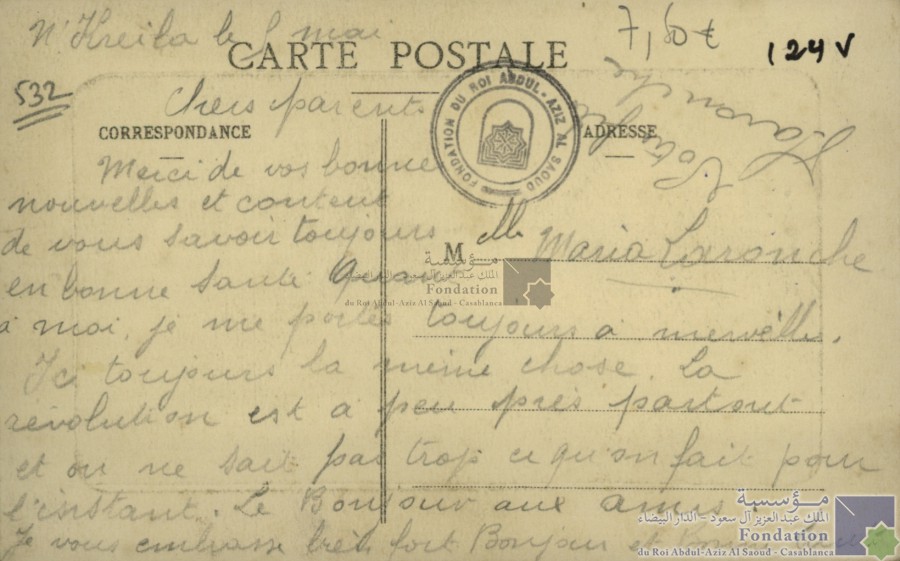 N'Kreila le 8 mai
7,80 €
124 V
CARTE POSTALE
532
Chers parents
CORRESPONDANCE
ADRESSE
FONDATION DU ROI ABDUL-AZIZ AL SAOUD
Merci de vos bonne
nouvelles et content
de vous savoir toujours
Mlle Maria Larouche
en bonne santé Quant
à moi, je me portes toujours à merveille.
Ici toujours la même chose. La
révolution est à peu près partout
et on ne sait pas trop ce qu'on fait pour
l'instant. Le Bonjour aux amis
Je vous embrasse très fort Bonjour et
مؤسسة
الملك عبد العزيز آل سعود - الدار البيضاء
Fondation
du Roi Abdul-Aziz Al Saoud - Casablanca
مؤسسة
الملك عبد العزيز آل سعود - الدار البيضاء
Fondation
du Roi Abdul-Aziz Al Saoud - Casablanca